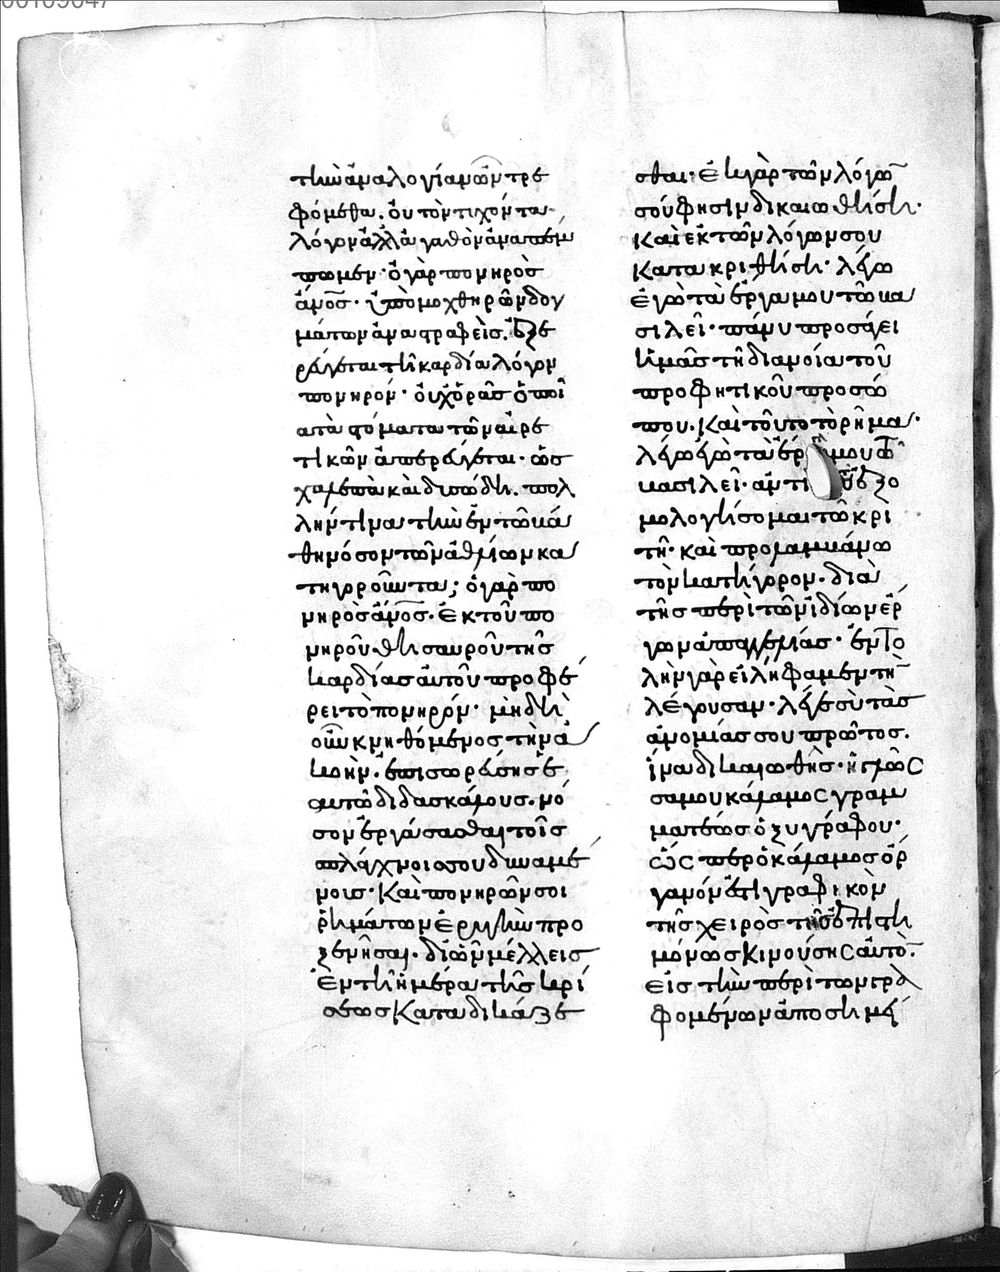 τὴν ἀναλογίαν ὧν τρε
φόμεθα. οὐ τὸν τυχόντα
λόγον ἀλλ' ἀγαθὸν ἀναπέμ
πωμεν· ὁ γὰρ πονηρὸς
ἄνος· ὑπὸ μοχθηρῶν δογ
μάτων ἀνατραφεὶς. ἐξε
ρεύγεται τῆ καρδία λόγον
πονηρόν· οὐχ ὁρᾶς ὁποῖ
α τὰ στόματα τῶν αἱρε
τικῶν ἀπερεύγεται· ὡς
χαλεπὰ καὶ δυσώδη. πολ
λήν τινα τὴν ἐν τῶ κά
θη νόσον τῶν ἀθλίων κα
τηγοροῦντα; ὁ γὰρ πο
νηρὸς ἄνος· ἐκ τοῦ πο
νηροῦ θησαυροῦ τῆς
καρδίας αὐτοῦ προφέ
ρει τὸ πονηρόν· μὴ δὴ
οὖν κνηθόμενος τὴν ἀ
κοὴν. ἐπισωρεύσης ἑ
αυτῶ διδασκάλους. νό
σον ἐργάσασθαι τοῖς
σπλάγχνοις σου δυναμέ
νους· καὶ πονηρῶν σοι
ῥημάτων ἐρυγὴν προ
ξενῆσαι. δι' ὧν μέλλεις
ἐν τῆ ἡμέρα τῆς κρί
σεως καταδικάζε
σθαι· ἐκ γὰρ τῶν λόγων
σού φησιν δικαιωθήση·
καὶ ἐκ τῶν λόγων σου
κατακριθήση· λέγω
ἐγὼ τὰ ἔργα μου τῶ βα
σιλεῖ· πάνυ προσάγει
ἡμᾶς τῆ διανοία τοῦ
προφητικοῦ προσώ
που. καὶ τοῦτο τὸ ρῆμα·
λέγω ἐγὼ τὰ ἔρ μου τῶ
βασιλεῖ· ἀντὶ τοῦ ἐξο
μολογήσομαι τῶ κρι
τῆ· καὶ προλαμβάνω
τὸν κατήγορον. διὰ
τῆς περὶ τῶν ἰδίων ἔρ
γων ἀπαγγελίας· ἐντο
λὴν γὰρ εἰλήφαμεν τὴν
λέγουσαν· λέγε σὺ τὰς
ἀνομίας σου πρῶτος.
ἵνα δικαιωθῆς· ἡ γλῶσ
σα μου κάλαμος γραμ
ματέως ὀξυγράφου·
ὥς περ ὁ κάλαμος ὄρ
γανόν ἐστι γραφικὸν
τῆς χειρὸς τῆς ἐπιστη
μόνως κινούσης αὐτὸν
εἰς τὴν περὶ τῶν γρα
φομένων ἀποσημεί